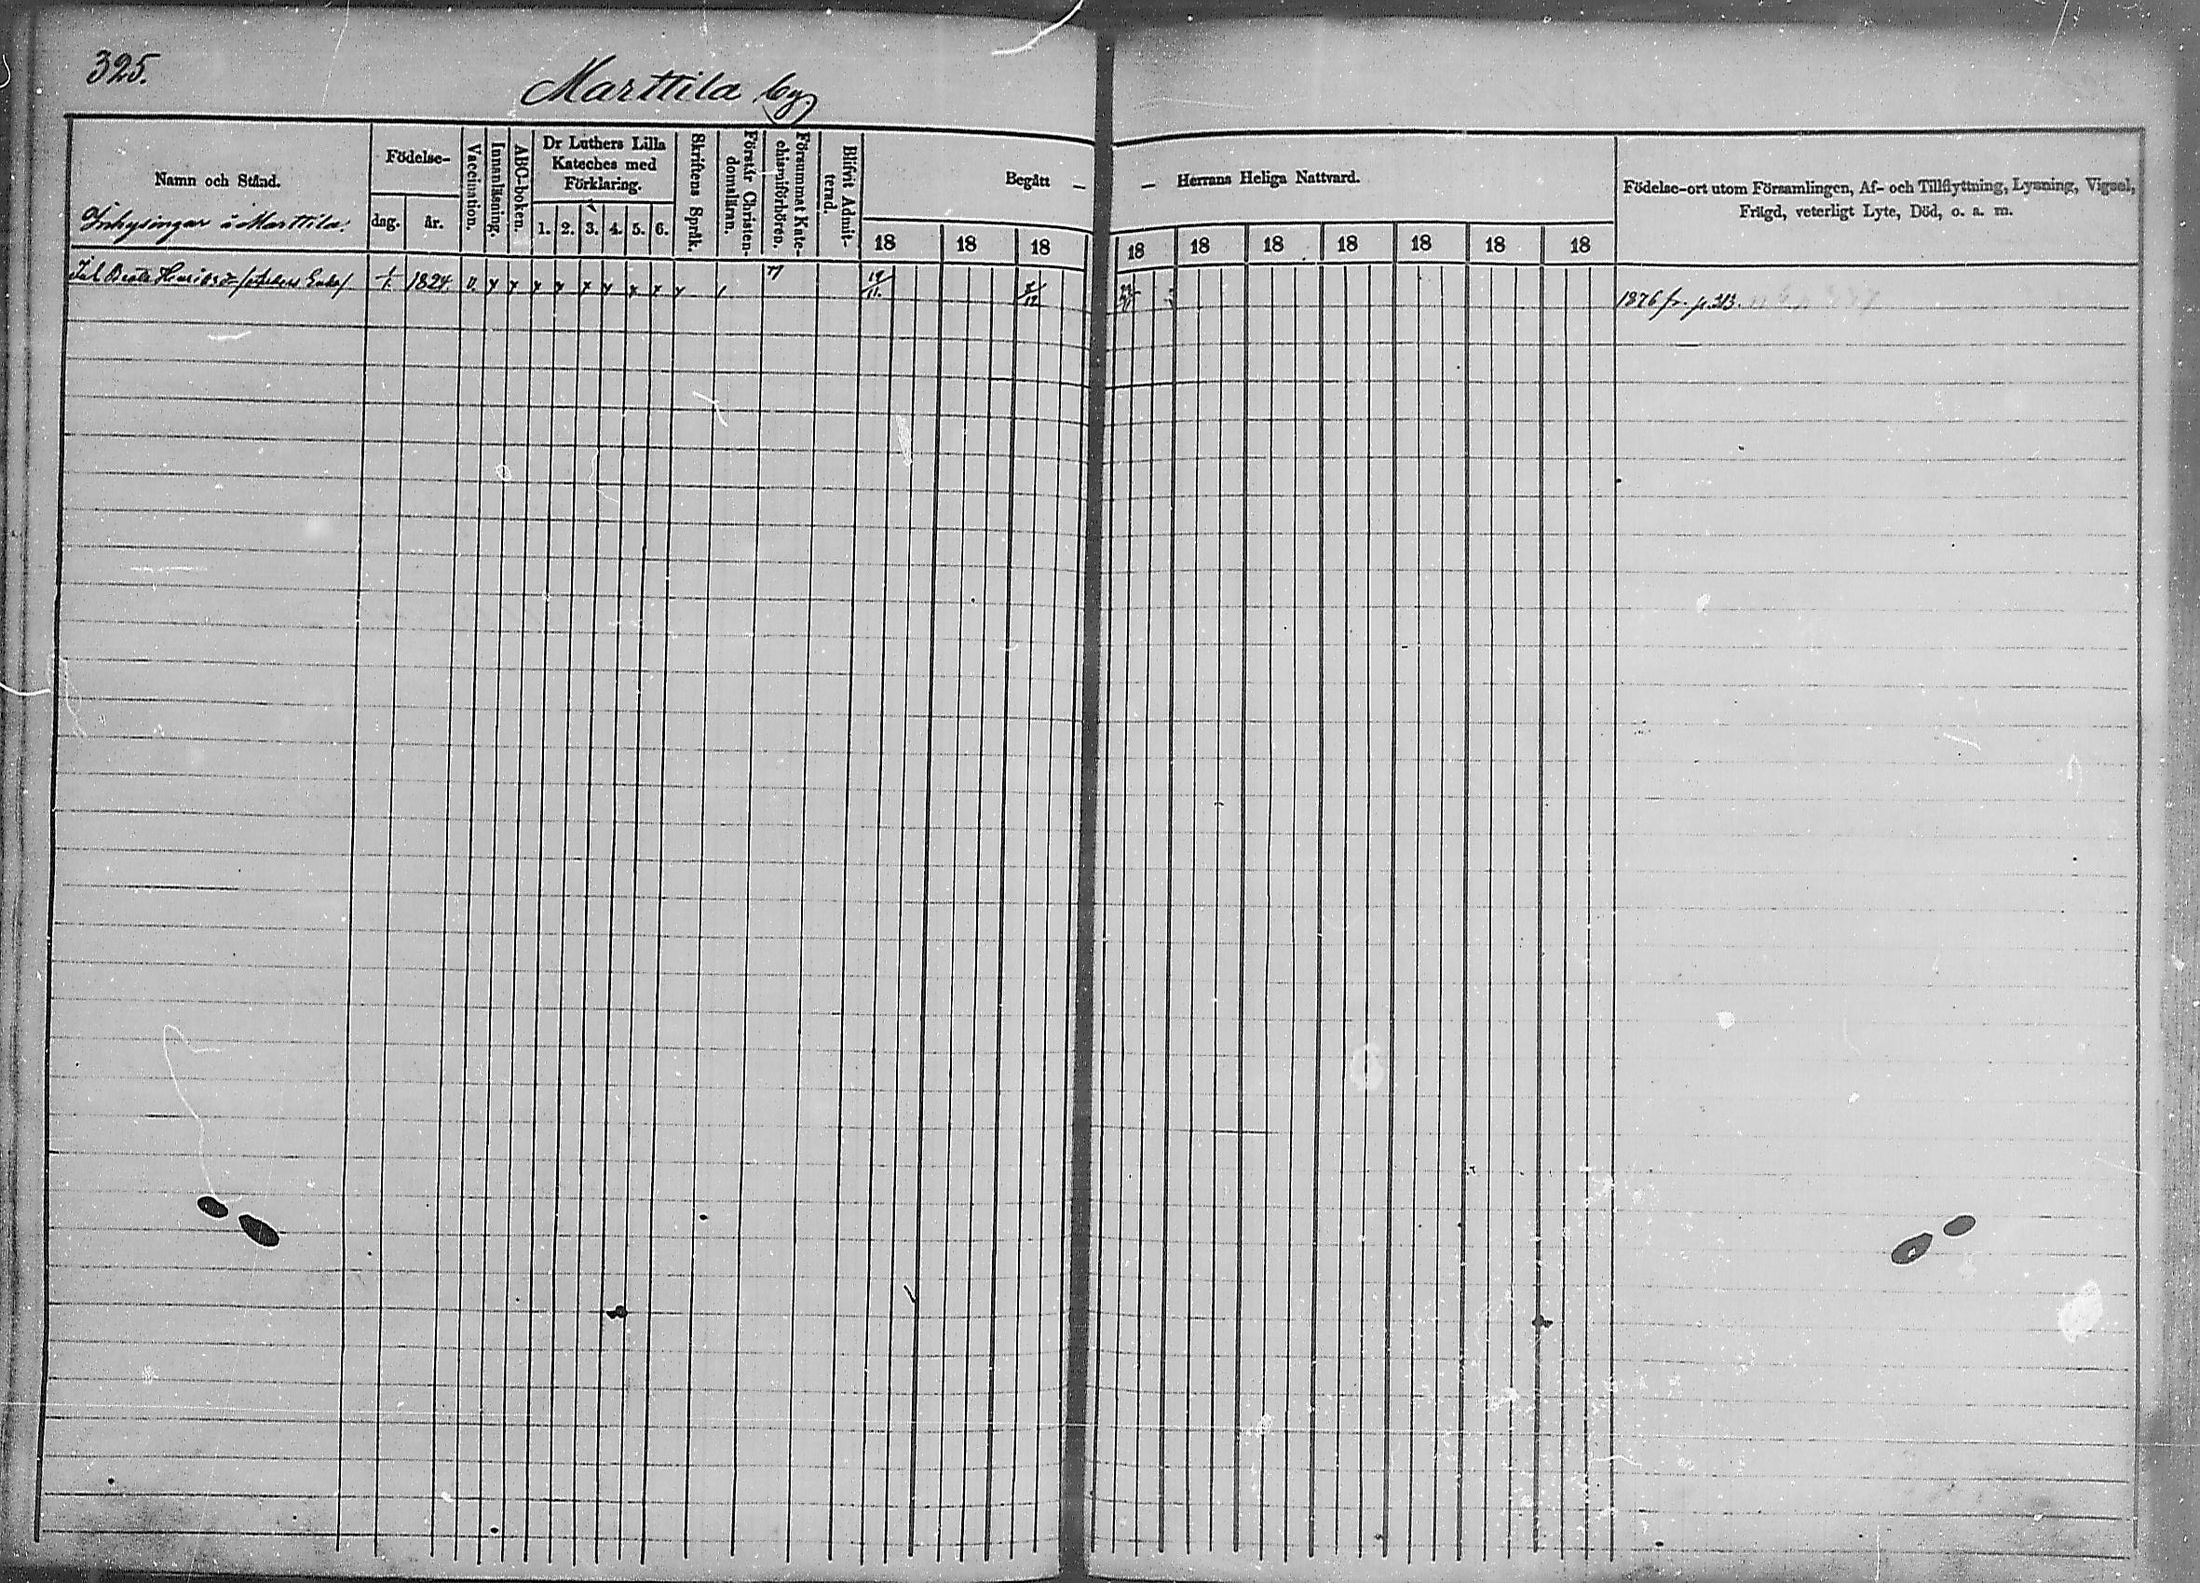 325.
Marttila by
Namn och Stånd.
Födelse-
dag.
år.
Vaccination.
Innanläsning.
ABC-boken.
Dr Luthers Lilla
Kateches med
Förklaring.
1. 2. 3. 4. 5. 6.
Skriftens Språk.
Förstår Christen-
domsläran.
Försummat Kate-
chismiförhören.
Blifvit Admit-
terad.
Begått — — Herrans Heliga Nattvard.
18 18 18 18 18 18 18 18 18 18
Födelse-ort utom Församlingen, Af- och Tillflyttning, Lysning, Vigsel,
Frägd, veterligt Lyte, Död, o. a. m.
Inhysingar å Marttila.
Beata 1824 v. x x x x x x x x x 19/11.
1876 fr. p. 213.